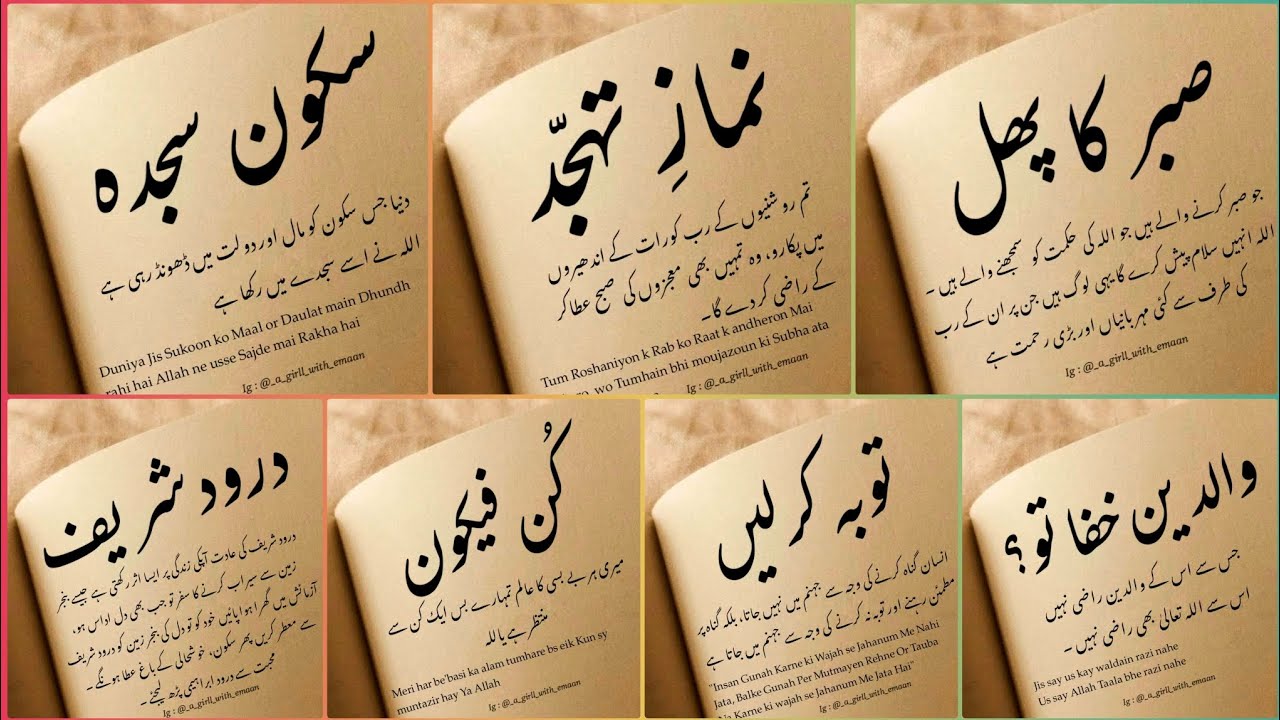 سکون سجدہ
دنیا جس سکون کو مال اور دولت میں ڈھونڈ رہی ہے
اللہ نے اسے سجدے میں رکھا ہے
Duniya Jis Sukoon ko Maal or Daulat main Dhundh
rahi hai Allah ne usse Sajde mai Rakha hai
Ig : @_a_girll_with_emaan
نمازِ تہجّد
تم روشنیوں کے رب کو رات کے اندھیروں
میں پکارو، وہ تمہیں بھی معجزوں کی صبح عطا کر
کے راضی کر دے گا۔
Tum Roshaniyon k Rab ko Raat k andheron Mai
ro, wo Tumhain bhi moujazoun ki Subha ata
Ig : @_a_girll_with_emaan
صبر کا پھل
جو صبر کرنے والے ہیں جو اللہ کی حکمت کو سمجھنے والے ہیں ۔
اللہ انہیں سلام پیش کرے گا یہی لوگ ہیں جن پر ان کے رب
کی طرف سے کئی مہربانیاں اور بڑی رحمت ہے
Ig : @_a_girll_with_emaan
درود شریف
درود شریف کی عادت آپکی زندگی پر ایسا اثر رکھتی ہے جیسے بنجر
زمین سے سیراب کرنے کا سفر تو جب بھی دل اداس ہو،
آزمائش میں گھرا ہوا پائیں خود کو تو دل کی بنجر زمین کو درود شریف
سے معطر کریں پھر سکون، خوشحالی کے باغ عطا ہونگے ۔
محبت سے درود ابراہیمی پڑھ لیجئے ۔
Ig : @_a_girll_with_emaan
کُن فیکون
میری ہر بے بسی کا عالم تمہارے بس ایک کن سے
منتظر ہے یا اللہ
Meri har be'basi ka alam tumhare bs eik Kun sy
muntazir hay Ya Allah
Ig : @_a_girll_with_emaan
توبہ کرلیں
انسان گناہ کرنے کی وجہ سے جہنم میں نہیں جاتا، بلکہ گناہ پر
مطمئن رہنے اور توبہ نہ کرنے کی وجہ سے جہنم میں جاتا ہے
"Insan Gunah Karne ki Wajah se Jahanum Me Nahi
Jata, Balke Gunah Per Mutmayen Rehne Or Tauba
Na Karne ki wajah se Jahanum Me Jata Hai"
Ig : @_a_girll_with_emaan
والدین خفا تو؟
جس سے اس کے والدین راضی نہیں
اس سے اللہ تعالیٰ بھی راضی نہیں ۔
Jis say us kay waldain razi nahe
Us say Allah Taala bhe razi nahe
Ig : @_a_girll_with_emaan